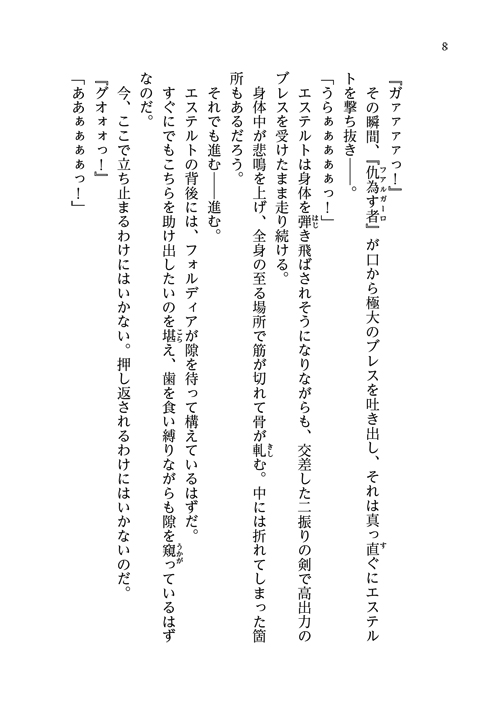 8
『ガァァァァっ！』
その瞬間、『仇為す者』が口から極大のブレスを吐き出し、それは真っ直ぐにエステル
トを撃ち抜き――。
「うらぁぁぁぁぁっ！」
エステルトは身体を弾き飛ばされそうになりながらも、交差した二振りの剣で高出力の
ブレスを受けたまま走り続ける。
身体中が悲鳴を上げ、全身の至る場所で筋が切れて骨が軋む。中には折れてしまった箇
所もあるだろう。
それでも進む――進む。
エステルトの背後には、フォルディアが隙を待って構えているはずだ。
すぐにでもこちらを助け出したいのを堪え、歯を食い縛りながらも隙を窺っているはず
なのだ。
今、ここで立ち止まるわけにはいかない。押し返されるわけにはいかないのだ。
『グオォォっ！』
「ああぁぁぁぁぁっ！」